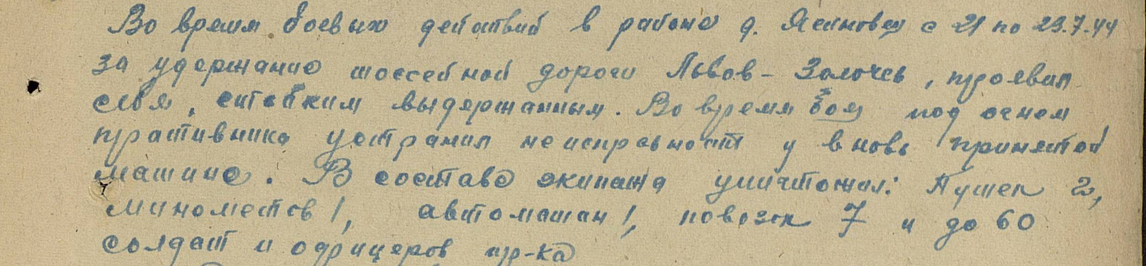 Во время боевых действий в районе д. Ясиновцы с 21 по 23.7.44
за удержание шоссейной дороги Львов – Золочев, проявил
себя, стойким выдержанным. Во время боя под огнем
противника устранил неисправность у вновь принятой
машине. В составе экипажа уничтожил: Пушек 2,
минометов 1, автомашин 1, повозок 7 и до 60
солдат и офицеров пр-ка